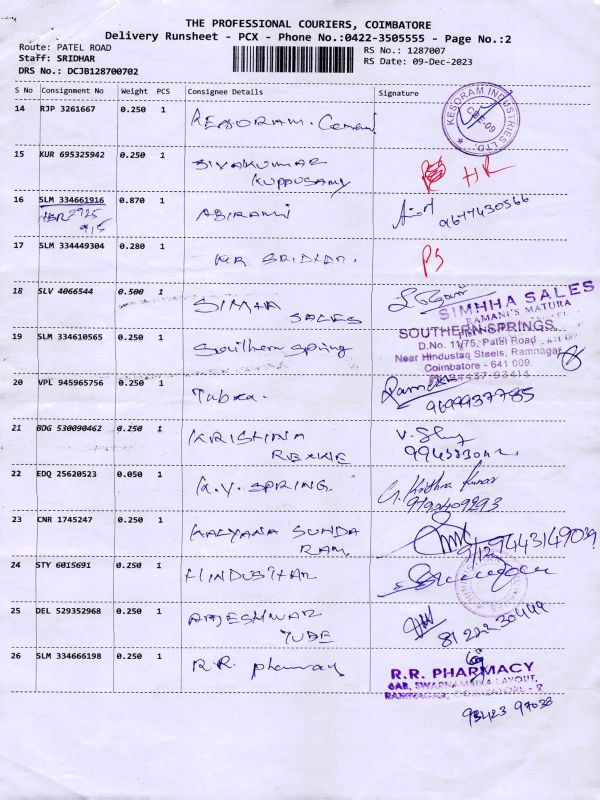 THE PROFESSIONAL COURIERS, COIMBATORE
Delivery Runsheet - PCX - Phone No.:0422-3505555 - Page No.:2
Route: PATEL ROAD RS No.: 1287007
Staff: SRIDHAR RS Date: 09-Dec-2023
DRS No.: DCJB128700702
S No Consignment No Weight PCS Consignee Details Signature
14 RJP 3261667 0.250 1 KESORAM. Cement
KESORAM INDUSTRIES LTD.
15 KUR 695325942 0.250 1 SIVAKUMAR HR
KUPPUSAMY
16 SLM 334661916 0.870 1 ABIRAMI 9677430566
2925
915
17 SLM 334449304 0.280 1 KR SRIDHAR. PS
18 SLV 4066544 0.500 1 SIMHA
SALES
SIMHHA SALES
RAMANI'S MATURA
19 SLM 334610565 0.250 1 Southern Spring
SOUTHERN SPRINGS,
D.No. 11/75, Patel Road
Near Hindustan Steels, Ramnagar
Coimbatore - 641 009.
20 VPL 945965756 0.250 1 9699937785
21 BDG 530090462 0.250 1 KRISHNA
22 EDQ 25620523 0.050 1 K.V. SPRING G. Krithra Kumar
23 CNR 1745247 0.250 1 KALYANA SUNDA
RAM 9443149039
24 STY 6015691 0.250 1 HINDUSTHAN
25 DEL 529352968 0.250 1 TUBE
81222 30449
26 SLM 334666198 0.250 1 R.R. pharmacy
R.R. PHARMACY